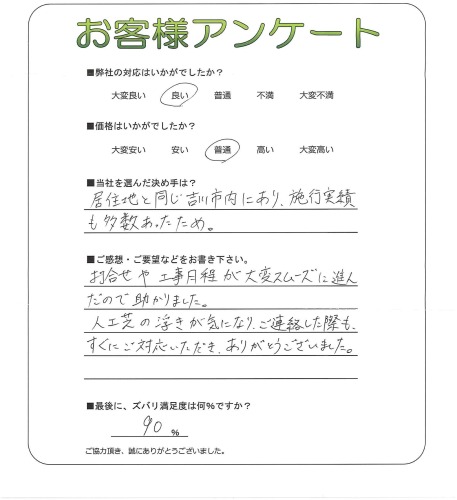 お客様アンケート
■弊社の対応はいかがでしたか？
大変良い 良い 普通 不満 大変不満
■価格はいかがでしたか？
大変安い 安い 普通 高い 大変高い
■当社を選んだ決め手は？
居住地と同じ吉川市内にあり、施行実績
も多数あったため。
■ご感想・ご要望などをお書き下さい。
打合せや工事日程が大変スムーズに進ん
だので助かりました。
人工芝の浮きが気になり、ご連絡した際も、
すぐにご対応いただき、ありがとうございました。
■最後に、ズバリ満足度は何%ですか？
90 %
ご協力頂き、誠にありがとうございました。